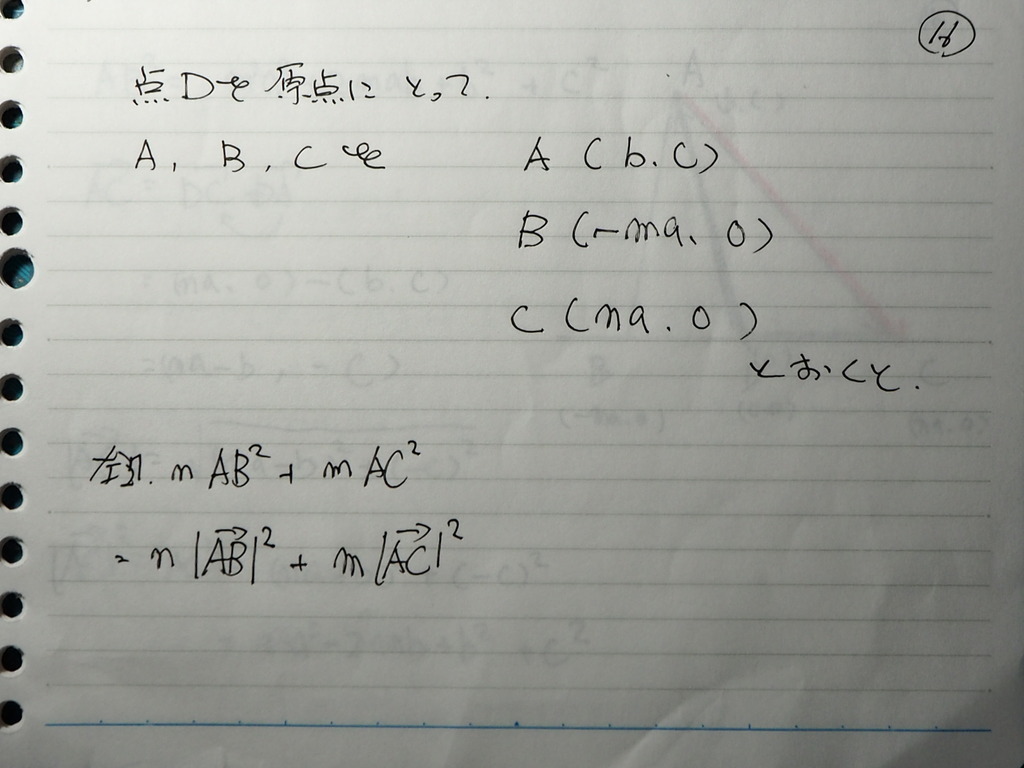 16
点Dを原点にとって.
A, B, Cを A (b.C)
B (-ma、0)
C (na.0)
とおくと.
左辺. n AB² + m AC²
= n |\overrightarrow{AB}|² + m |\overrightarrow{AC}|²